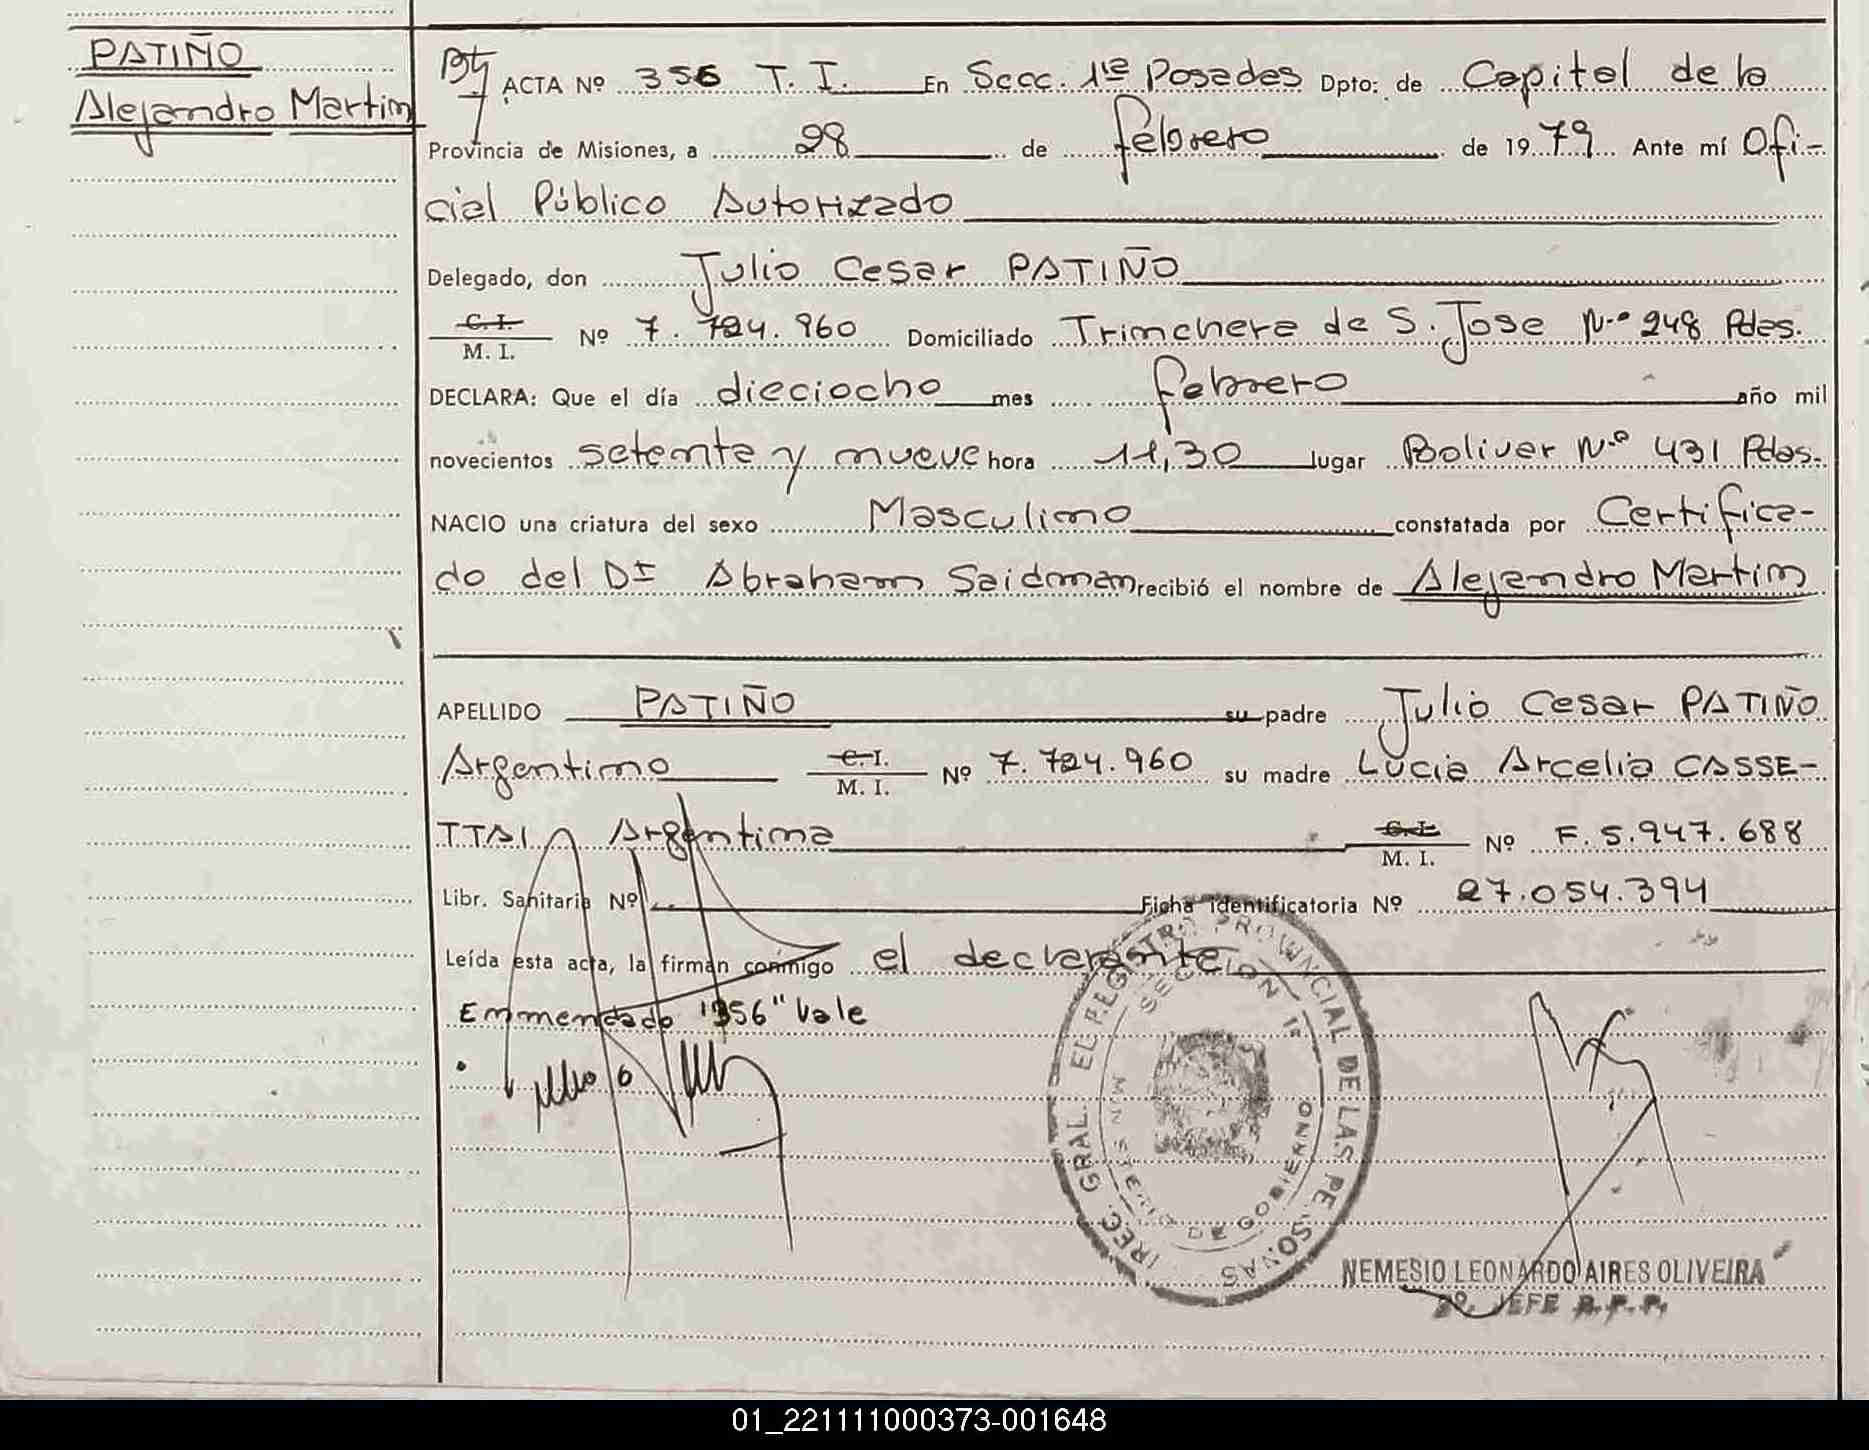 PATIÑO
Alejandro Martin
ACTA Nº 356 T. I. En Secc. 1ra Posadas Dpto: de Capital de la
Provincia de Misiones, a 28 de febrero de 1979 Ante mí Ofi-
cial Público Autorizado
Delegado, don Julio Cesar PATIÑO
C. I.
M. I. Nº 7.724.960 Domiciliado Trinchera de S. Jose Nº 248 Pdas.
DECLARA: Que el día dieciocho mes febrero año mil
novecientos setenta y nueve hora 11,30 lugar Bolivar Nº 431 Pdas.
NACIO una criatura del sexo Masculino constatada por Certifica-
do del Dr Abraham Saidman recibió el nombre de Alejandro Martin
APELLIDO PATIÑO su padre Julio Cesar PATIÑO
Argentino C. I.
M. I. Nº 7.724.960 su madre Lucia Arcelia CASSE-
TTAI Argentina C. I.
M. I. Nº F. 5.947.688
Libr. Sanitaria Nº Ficha identificatoria Nº 27.054.394
Leída esta acta, la firman conmigo el declarante
Enmendado "356" Vale
DIREC. GRAL. EL REGISTRO PROVINCIAL DE LAS PERSONAS
SECCION 1ª
MINISTERIO DE GOBIERNO
NEMESIO LEONARDO AIRES OLIVEIRA
2º JEFE R.P.P.
01_221111000373-001648